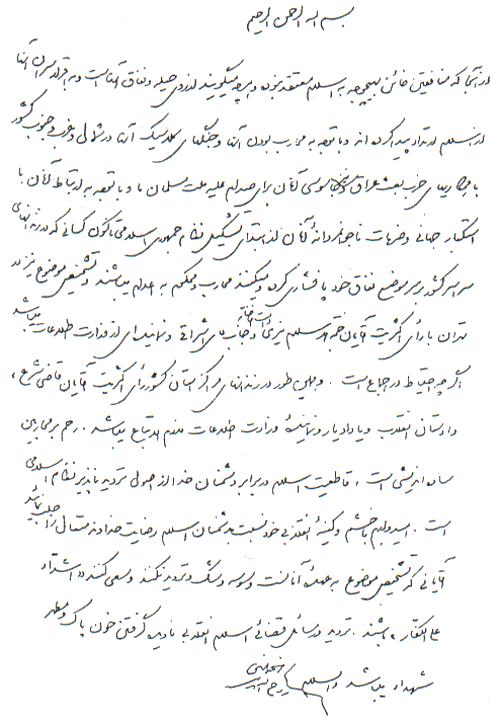 بسم الله الرحمن الرحیم
از آنجا که منافقین خائن بهیچوجه به اسلام معتقد نبوده و هر چه میگویند از روی حیله و نفاق آنهاست و به اقرار سران آنها
از اسلام ارتداد پیدا کرده‌اند و با توجه به محارب بودن آنها و جنگهای کلاسیک آنها در شمال و غرب و جنوب کشور
با همکاریهای حزب بعث عراق و نیز جاسوسی آنان برای صدام علیه ملت مسلمان ما و با توجه به ارتباط آنان با
استکبار جهانی و ضربات ناجوانمردانهٔ آنان از ابتدای تشکیل نظام جمهوری اسلامی تا کنون کسانی که در زندانهای
سراسر کشور بر سر موضع نفاق خود پافشاری کرده و میکنند محارب و محکوم به اعدام میباشند و تشخیص موضوع نیز در
تهران با رأی اکثریت آقایان حجة الاسلام نیری دامت افاضاته و جناب آقای اشراقی و نماینده‌ای از وزارت اطلاعات میباشد
اگر چه احتیاط در اجماع است . و همین طور در زندانهای مراکز استان کشور رأی اکثریت آقایان قاضی شرع ،
دادستان انقلاب و یا دادیار و نمایندهٔ وزارت اطلاعات لازم الاتباع میباشد . رحم بر محاربین
ساده اندیشی است ، قاطعیت اسلام در برابر دشمنان خدا از اصول تردید ناپذیر نظام اسلامی
است . امیدوارم با خشم و کینهٔ انقلابی خود نسبت به دشمنان اسلام رضایت خداوند متعال را جلب نمائید
آقایانی که تشخیص موضوع به عهدهٔ آنان است وسوسه و شک و تردید نکنند و سعی کنند « اشداء
علی الکفار » باشند . تردید در مسائل قضائی اسلام انقلابی نادیده گرفتن خون پاک و مطهر
شهداء میباشد والسلام روح الله الموسوی الخمینی